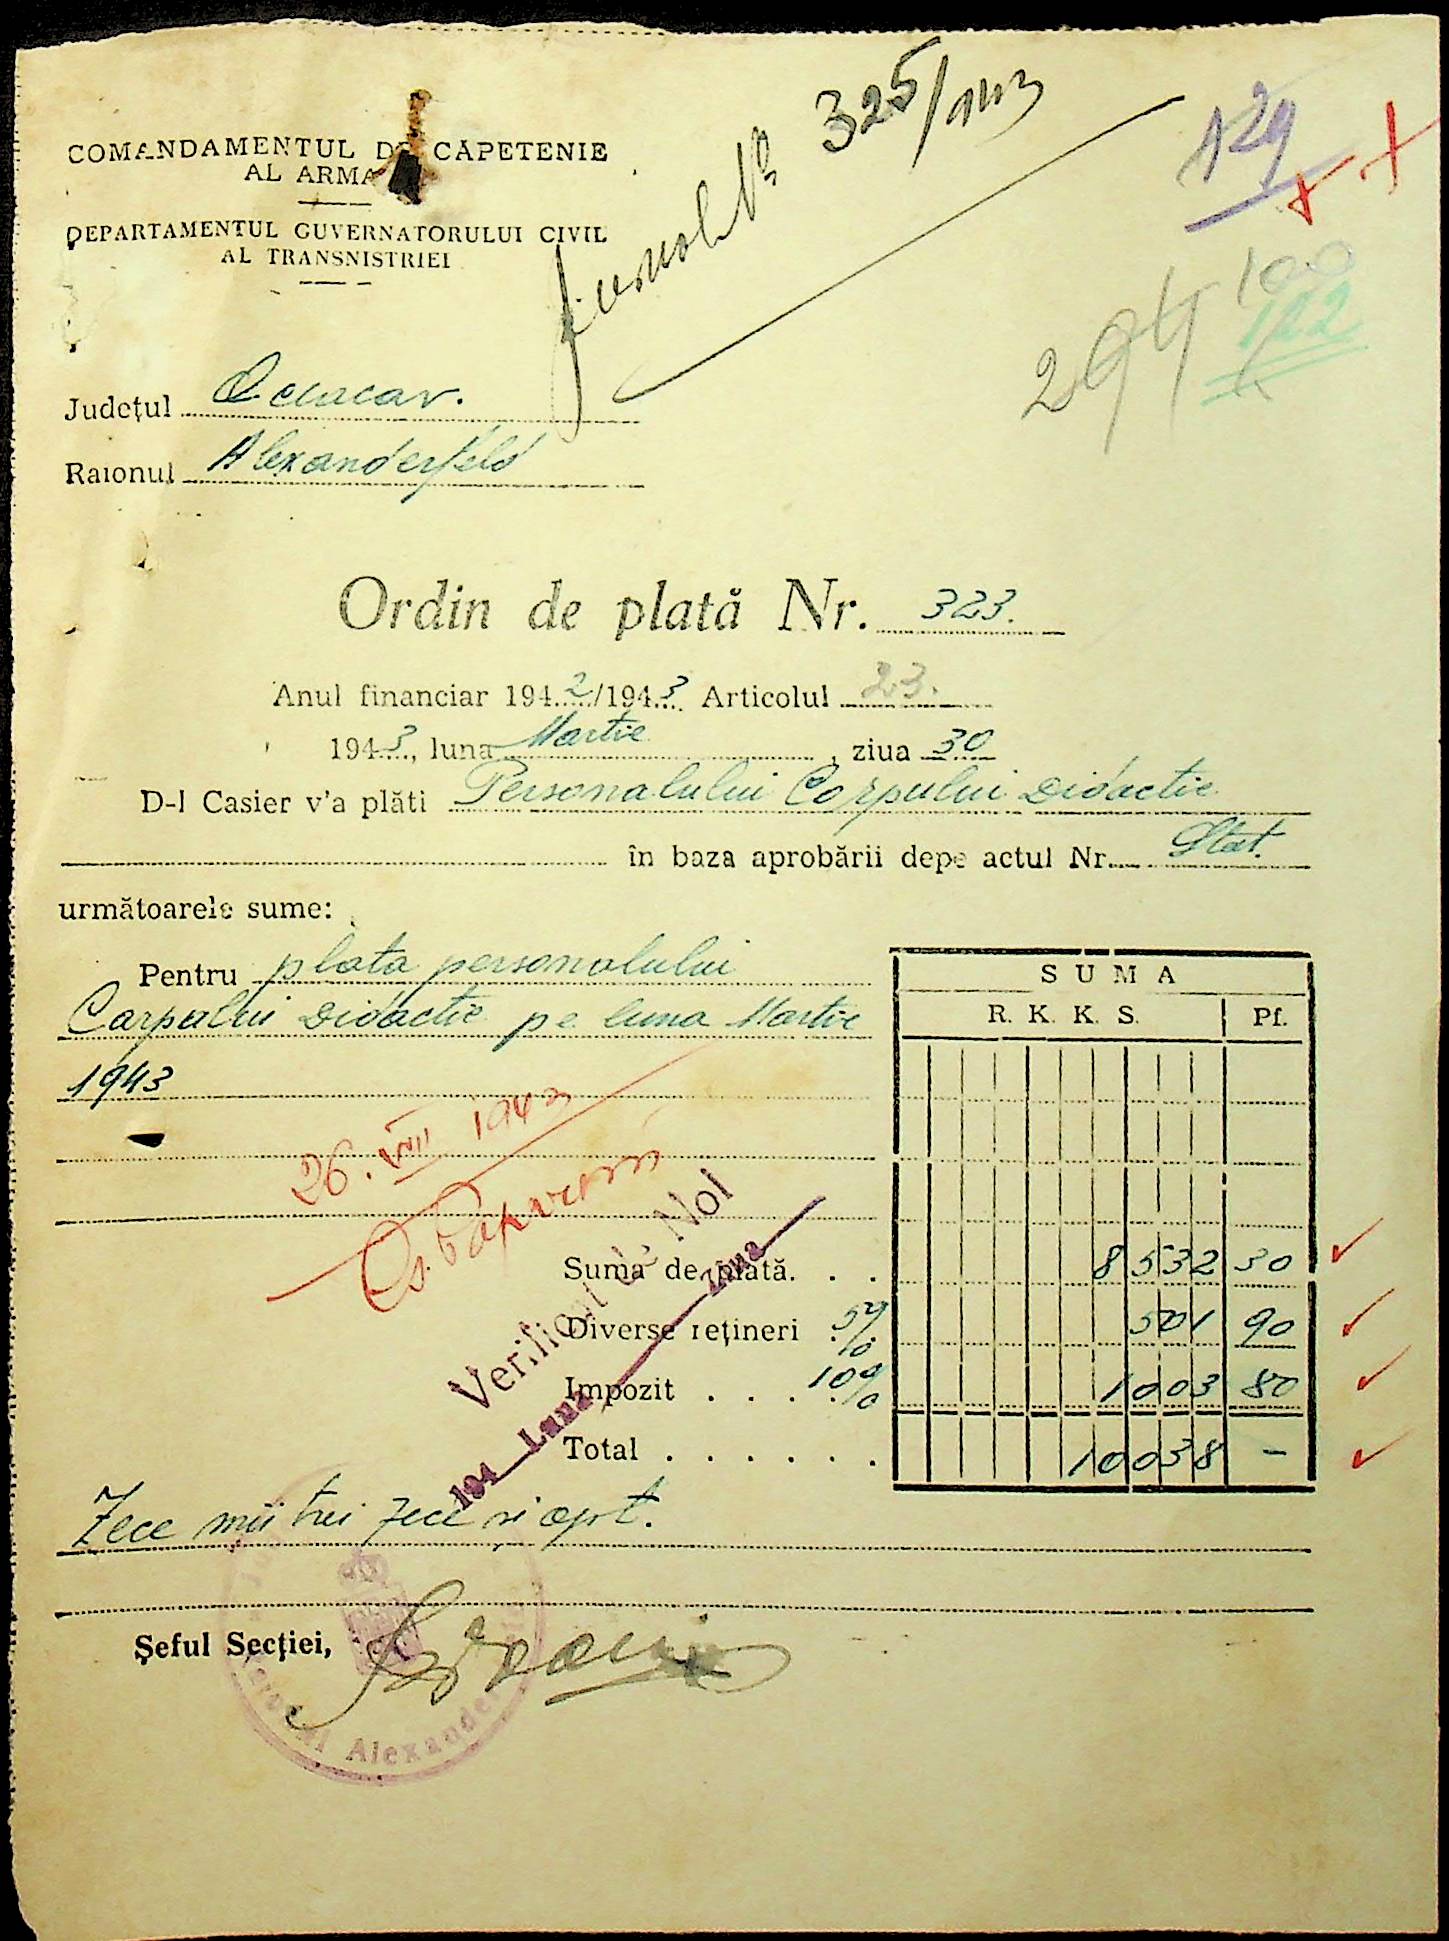 COMANDAMENTUL DE CAPETENIE
AL ARMA
DEPARTAMENTUL GUVERNATORULUI CIVIL
AL TRANSNISTRIEI
Jurnal No 325/1943
129
100
122
294
Județul Oceacav.
Raionul Alexanderfeld
Ordin de plată Nr. 323.
Anul financiar 1942/1943 Articolul 23.
1943, luna Martie, ziua 30
D-l Casier v'a plăti Personalului Corpului Didactic
în baza aprobării depe actul Nr. Stat.
următoarele sume:
Pentru plata personalului
Corpului Didactic pe luna Martie
1943
SUMA
R. K. K. S. Pf.
26. VIII 1943
Verificat de Noi
194 Luna Ziua
Suma de plată. . . 8532 30
Diverse rețineri 5% 501 90
Impozit . . . 10% 1003 80
Total . . . . . . 10038 -
Zece mii trei zece și opt.
Șeful Secției,
Raionul Alexander